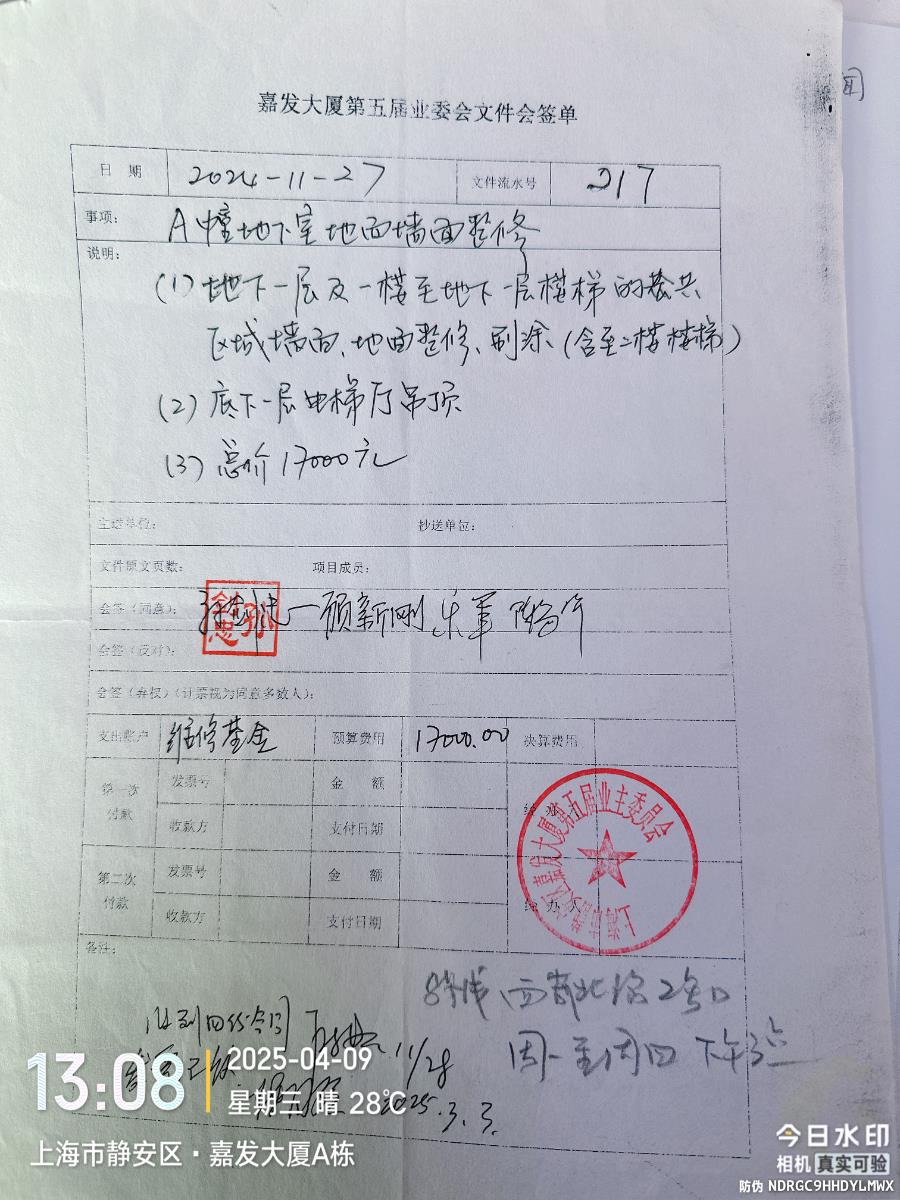 嘉发大厦第五届业委会文件会签单
日 期 2024-11-27 文件流水号 217
事项: A幢地下室地面墙面整修
说明:
(1) 地下一层及一楼至地下一层楼梯的公共
区域墙面、地面整修、刷涂(含至二楼楼梯)
(2) 底下一层电梯厅吊顶
(3) 总价17000元
主送单位: 抄送单位:
文件原文页数: 项目成员:
会签(同意): 顾新刚
会签(反对):
会签(弃权)(计票视为同意多数人):
支出账户 维修基金 预算费用 17000.00 决算费用
第一次付款 发票号 金 额 经 办
收款方 支付日期
第二次付款 发票号 金 额 经 办 人
收款方 支付日期
嘉发大厦第五届业主委员会
备注:
2号口
收到四份合同 11/28
周一至周四 下午
2025.3.3.
13:08
2025-04-09
星期三 晴 28℃
上海市静安区·嘉发大厦A栋
今日水印
相机 真实可验
防伪 NDRGC9HHDYLMWX